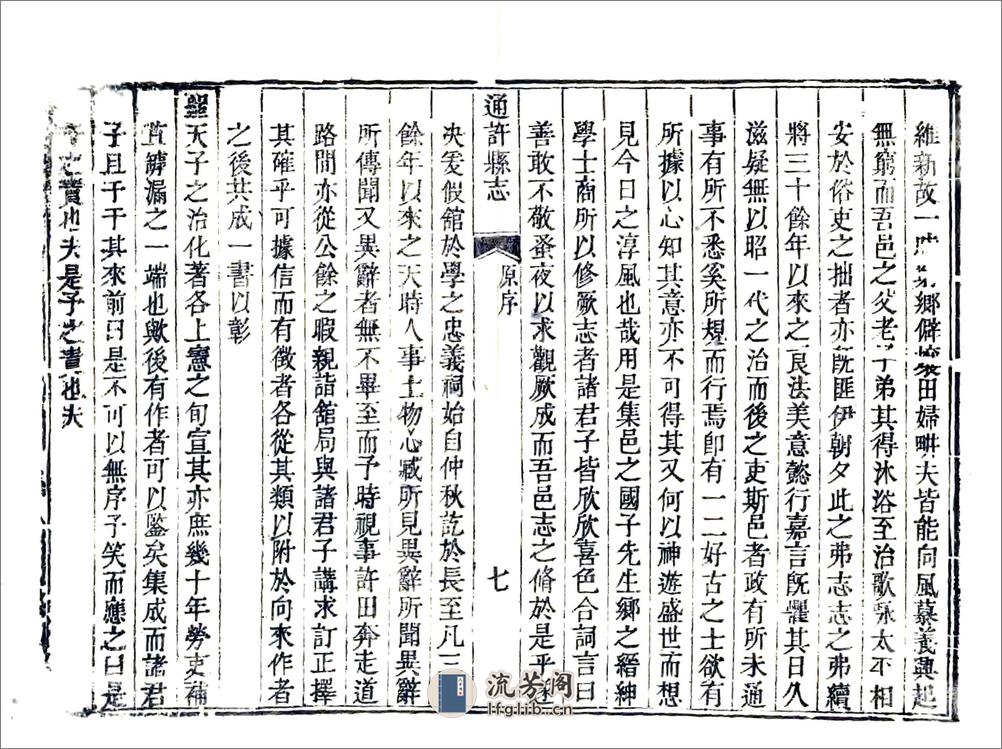 維新故一時鄉僻壤田婦畊夫皆能向風慕義興起
無窮而吾邑之父老子弟其得沐浴至治歌詠太平相
安於俗吏之拙者亦旣匪伊朝夕此之弗志志之弗續
將三十餘年以來之良法美意懿行嘉言旣懼其日久
滋疑無以昭一代之治而後之吏斯邑者政有所未通
事有所不悉奚所規而行焉卽有一二好古之士欲有
所據以心知其意亦不可得其又何以神遊盛世而想
見今日之淳風也哉用是集邑之國子先生鄉之縉紳
學士商所以修厥志者諸君子皆欣欣喜色合詞言曰
善敢不敬蚤夜以求觀厥成而吾邑志之脩於是乎
通許縣志
原序
七
決爰假舘於學之忠義祠始自仲秋訖於長至凡三
餘年以來之天時人事土物心臧所見異辭所聞異辭
所傳聞又異辭者無不畢至而予時視事許田奔走道
路間亦從公餘之暇親詣舘局與諸君子講求訂正擇
其確乎可據信而有徵者各從其類以附於向來作者
之後共成一書以彰
聖天子之治化著各上憲之旬宣其亦庶幾十年勞吏補
苴罅漏之一端也歟後有作者可以鑒矣集成而諸君
子且于于其來前曰是不可以無序予笑而應之曰是
之責也夫是予之責也夫
流芳阁
lfglib.cn